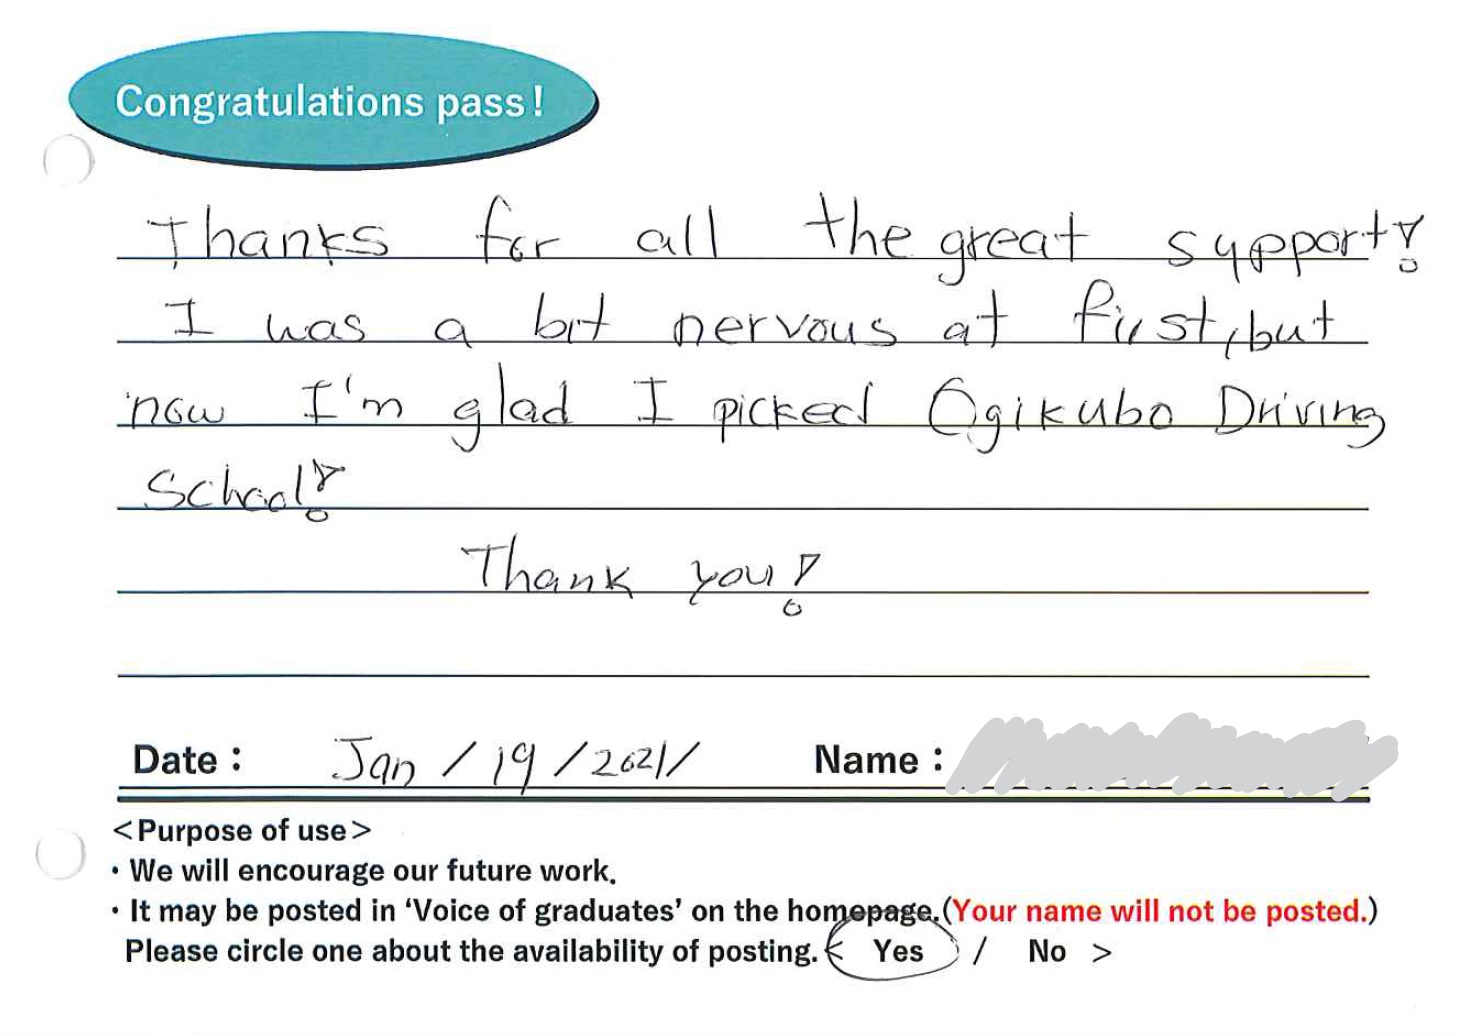 Congratulations pass!
Thanks for all the great support!
I was a bit nervous at first, but
now I'm glad I picked Ogikubo Driving
School!
Thank you!
Date : Jan / 19 / 2021/ Name :
<Purpose of use>
・We will encourage our future work.
・It may be posted in ‘Voice of graduates’ on the homepage.(Your name will not be posted.)
Please circle one about the availability of posting. < Yes / No >